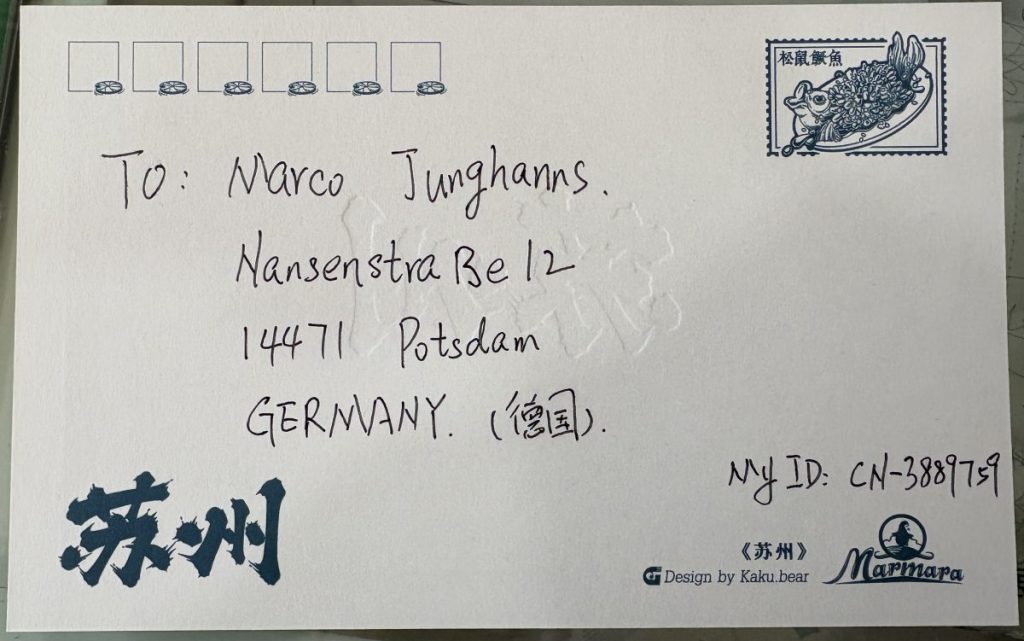 松鼠鳜魚
To: Marco Junghanns.
NansenstraBe 12
14471 Potsdam
GERMANY. (德国).
My ID: CN-3889759
苏州
《苏州》
Design by Kaku.bear
Marmara